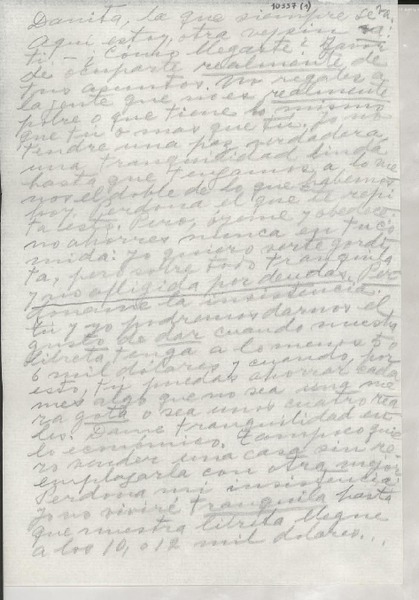 10337 (1)
Danita, la que siempre será.
Aquí estoy otra vez sin
ti. ¿Cómo llegaste? Favor
de ocuparte realmente de
tus apuntos. No regales a
la gente que no es realmente
pobre o que tiene lo mismo
que tú o mas que tú. Yo no
tendré una paz verdadera,
una tranquilidad linda
hasta que tengamos a lo me
nos el doble de lo que habemos
hoy. Perdona el que te repi
ta esto. Pero, óyeme y obedece:
no ahorres nunca en tu co
mida: Yo quiero verte gordi
ta, pero sobre todo tranquila
y no afligida por deudas. Per
dóname la insistencia.
Tú y yo podremos darnos el
gusto de dar cuando nuestra
libreta tenga a lo menos 5 o
6 mil dólares y cuando, por
esto, tú puedas ahorrar cada
mes algo que no sea una me
ra gota o sea unos cuatro rea
les. Dame tranquilidad en
lo económico. Tampoco quie
ro vender una casa sin re-
emplazarla con otra mejor.
Perdona mi insistencia:
Yo no viviré tranquila hasta
que nuestra libreta llegue
a los 10, o 12 mil dólares...